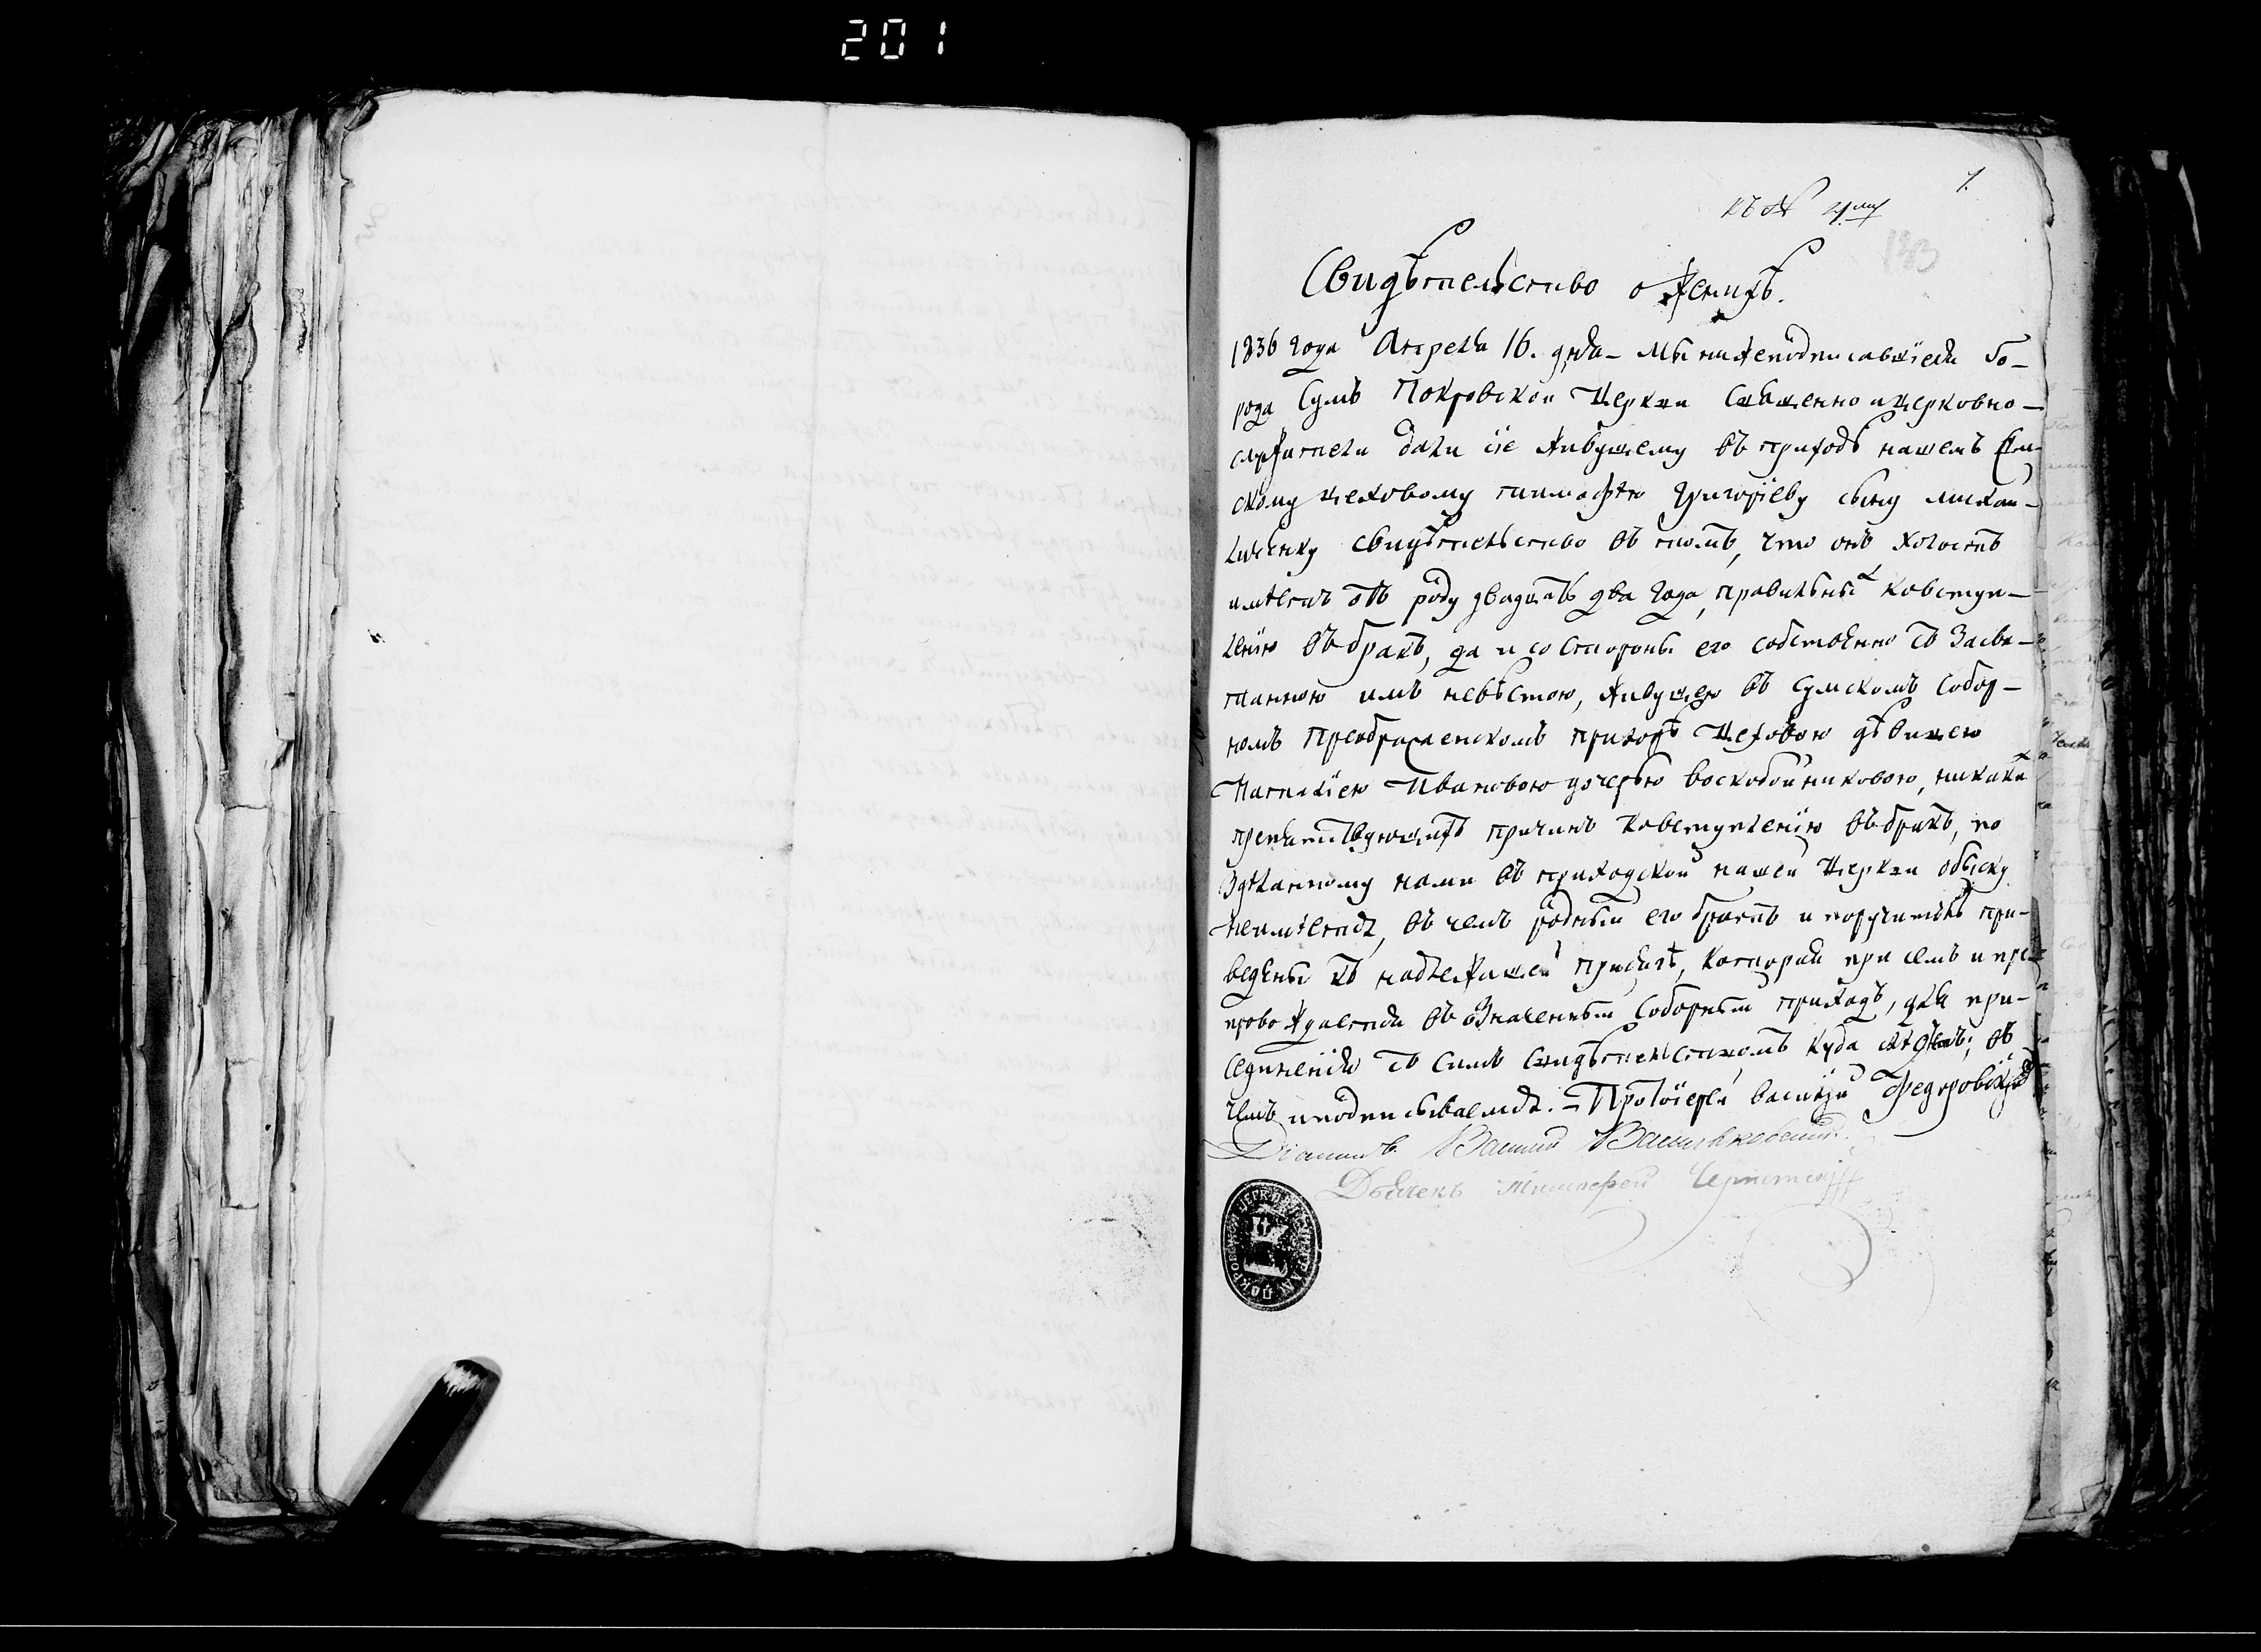 201
7.
къ №
133
Свидѣтельство о женихѣ.
1836 года Апреля 16. дня – Мы нижеподписавшіеся Го-
рода Сумъ Покровской Церкви Священно и церковно-
служители дали сіе живущему въ приходѣ нашемъ Сум-
скому цеховому тимофѣю Григоріеву сыну
свидѣтельство въ томъ, что онъ холостъ
имѣетъ отъ роду двадцать два года, правильный ковступ-
ленію въ бракъ, да и со стороны его собственно съ Засва-
танною имъ невѣстою, живущею въ сумскомъ Собор-
номъ Преображенскомъ приходѣ Цеховою дѣвицею
Наталіею Ивановою дочерью воскобойниковою, никаких
препятствующихъ причинъ ковступленію въ бракъ, по
Здѣланному нами въ приходской нашей Церкви обыску
неимѣется, въ чемъ родный его братъ и поручитель при-
ведены къ надлежащей присягѣ, который при семъ и пре-
провождается въ Значенный Соборный приходъ, для при-
седин­енія съ симъ свидѣтельствомъ куда въ
чемъ и подписываемся. – Протоіерей василій Федоровскій
Діаконъ Василий Васильковский
Дьячекъ Тимофей